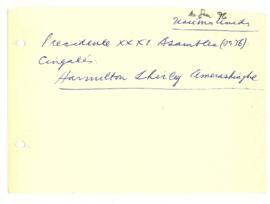 Naciones Unidas
Presidente XXXI Asamblea (1976)
Cingalés.
Harmilton Shirley Amerashinghe